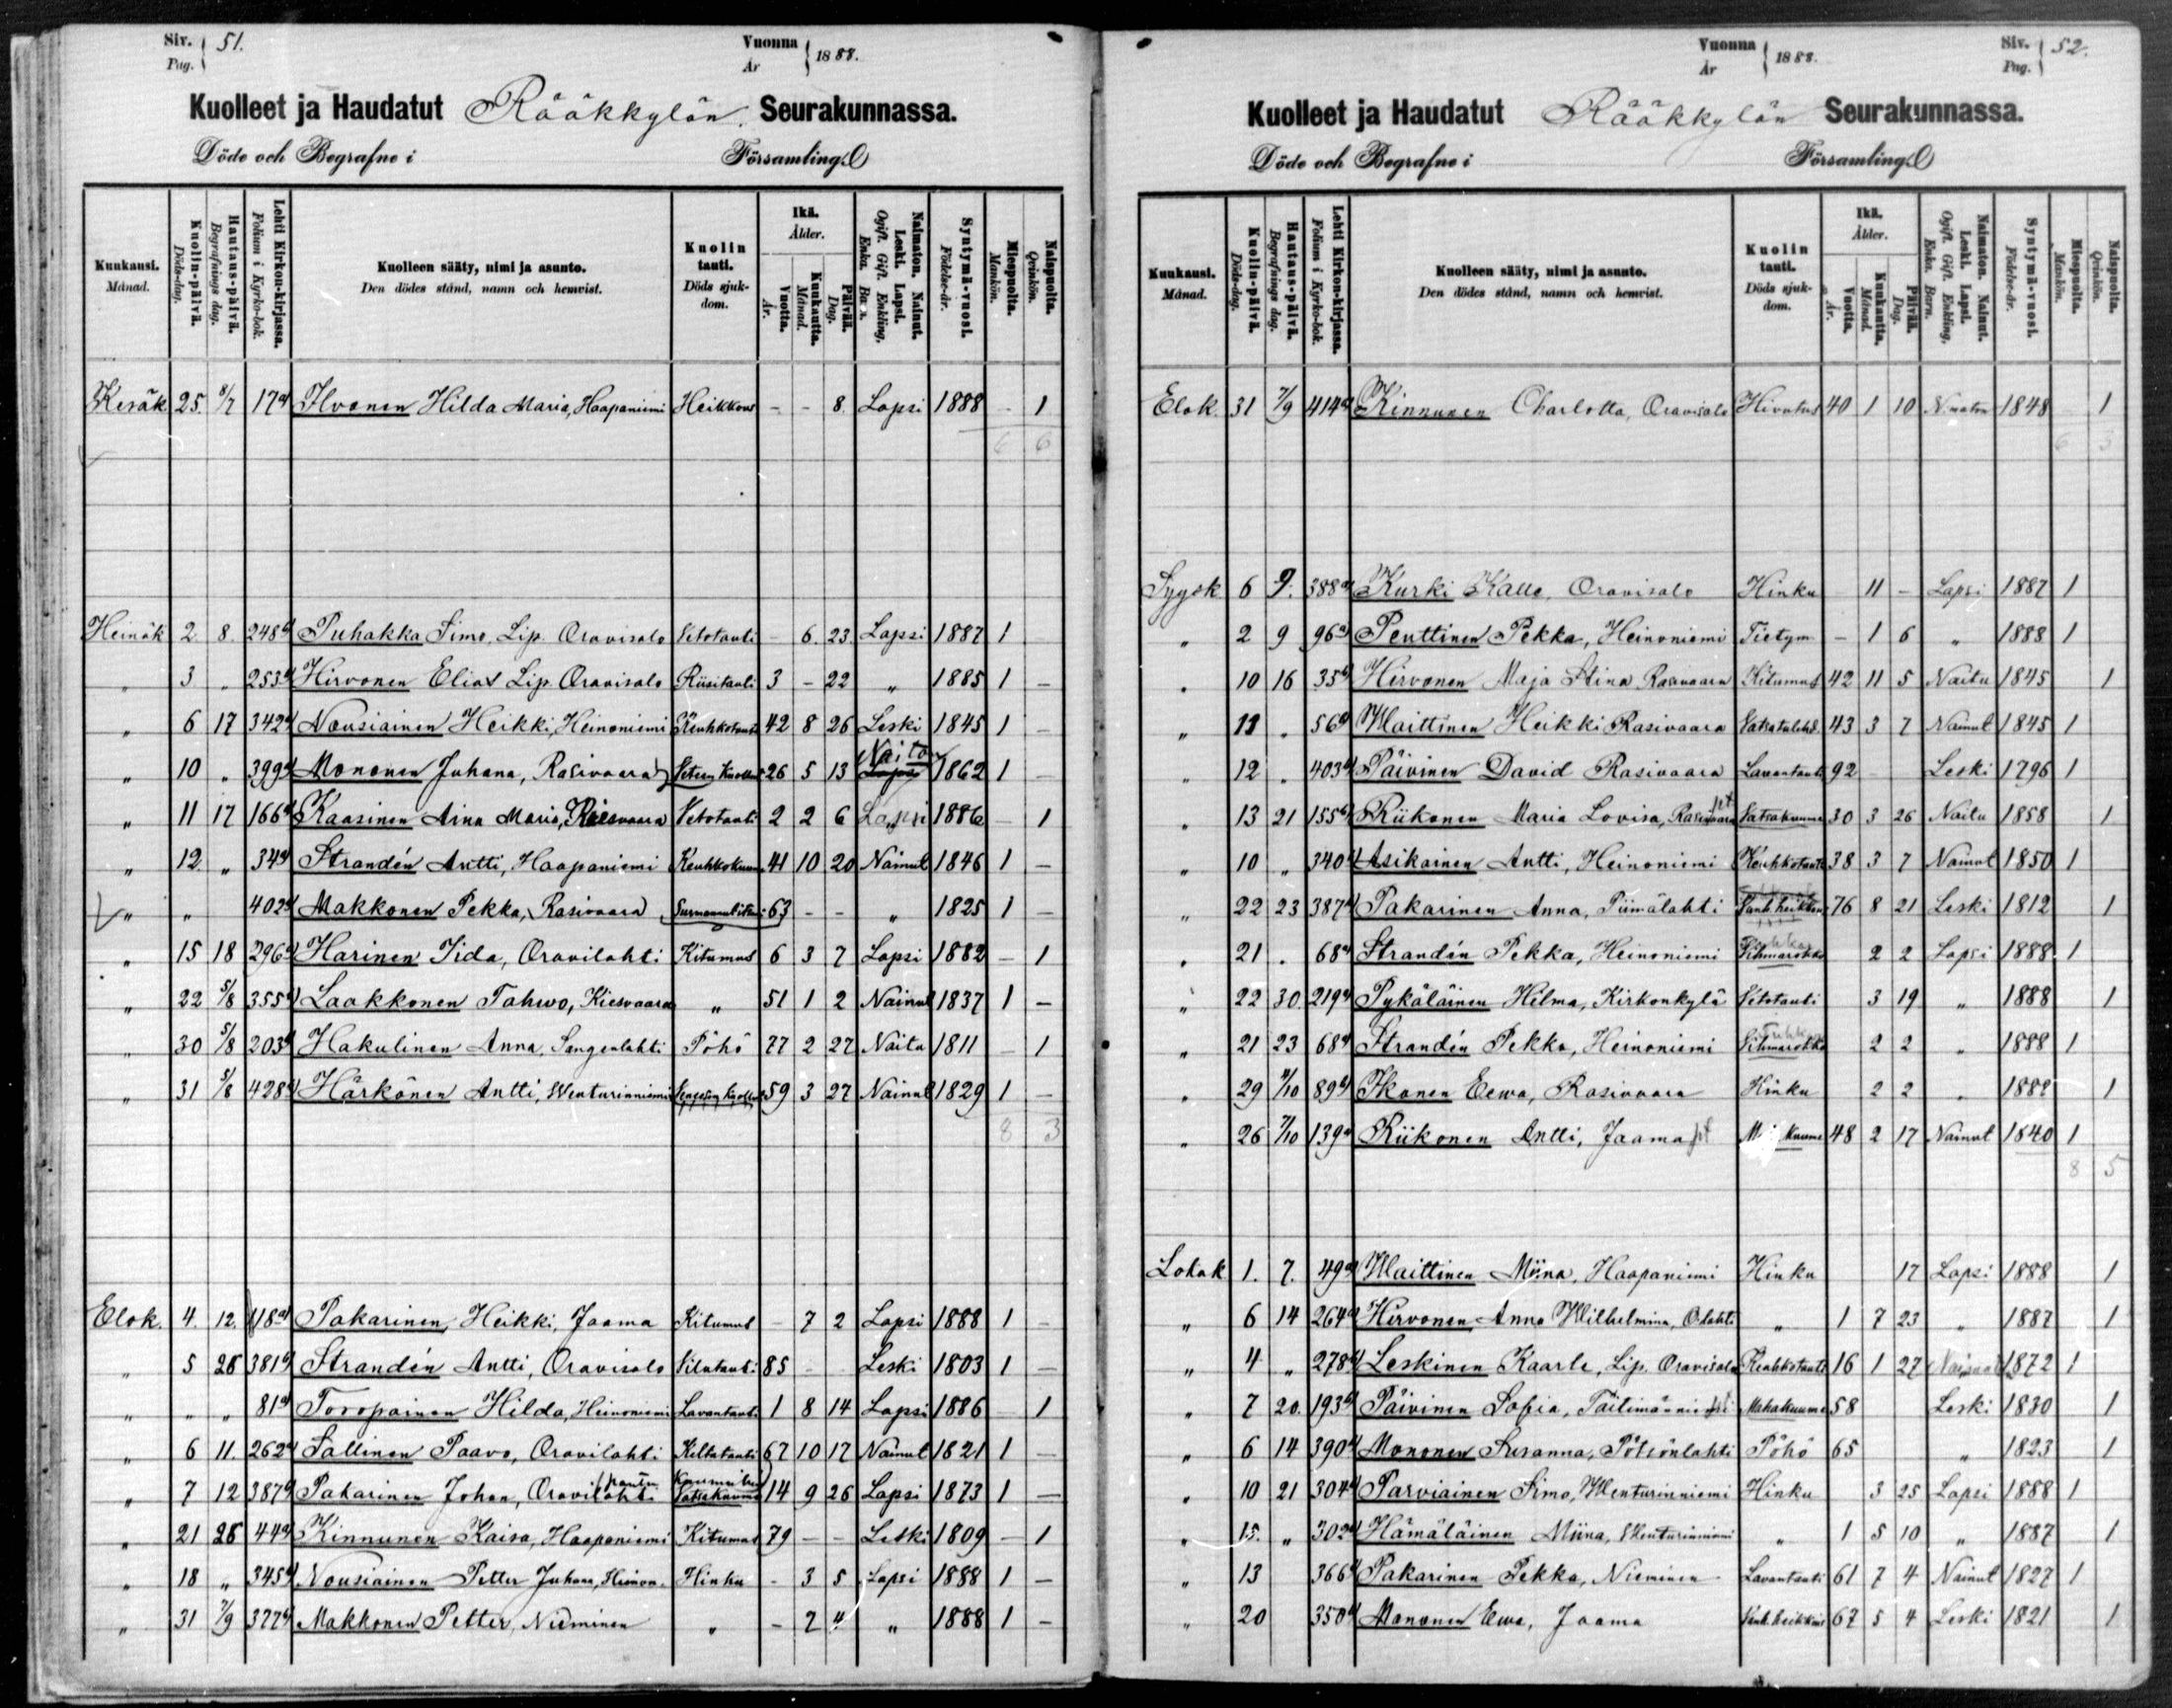 Siv. Pag. 51.
Vuonna År 1888.
Kuolleet ja Haudatut Rääkkylän Seurakunnassa.
Döde och Begrafne i Församling.
Kuukausi. Månad. Kuolin-päivä. Döds-dag. Hautaus-päivä. Begrafnings dag. Lehti Kirkon-kirjassa. Folium i Kyrko-bok. Kuolleen sääty, nimi ja asunto. Den dödes stånd, namn och hemvist. Kuolin tauti. Döds sjukdom. Ikä. Ålder. Vuotta. År. Kuukautta. Månad. Päivää. Dag. Naimaton. Nainut. Leski. Lapsi. Ogift. Gift. Enkling, Enka. Barn. Syntymä-vuosi. Födelse-år. Miespuolta. Mankön. Naispuolta. Qvinkön.
Kesäk. 25. 8/7 17 Ilvonen Hilda Maria, Haapaniemi Heikkous - - 8. Lapsi 1888 - 1
6 6
Heinäk 2. 8. 248 Puhakka Simo, Lip. Oravisalo Vetotauti - 6. 23. Lapsi 1887 1
" 3 " 253 Hirvonen Elias Lip. Oravisalo Riisitauti 3 - 22 " 1885 1 -
" 6 17 342 Nousiainen Heikki, Heinoniemi Keuhkotauti 42 8 26 Leski 1845 1 -
" 10 " 399 Mononen Juhana, Rasivaara 26 5 13 Naito 1862 1 -
" 11 17 166 Kaasinen Aina Maria, Rasivaara Vetotauti 2 2 6 Lapsi 1886 - 1
" 12. " 34 Strandén Antti, Haapaniemi Keuhkokuum. 41 10 20 Nainut 1846 1 -
" " 402 Makkonen Pekka, Rasivaara 63 - - " 1825 1 -
" 15 18 296 Harinen Iida, Oravilahti Kitumus 6 3 7 Lapsi 1882 - 1
" 22 5/8 355 Laakkonen Tahwo, Kiesvaara " 51 1 2 Nainut 1837 1 -
" 30 5/8 203 Hakulinen Anna, Sangenlahti Pöhö 77 2 27 Naitu 1811 - 1
" 31 5/8 428 Härkönen Antti, Wenturinniemi 59 3 27 Nainut 1829 1 -
8 3
Elok. 4. 12. 118 Pakarinen, Heikki, Jaama Kitumus - 7 2 Lapsi 1888 1 -
" 5 26 381 Strandén Antti, Oravisalo 85 - - Leski 1803 1 -
" " " 81 Toropainen Hilda, Heinoniemi Lavantauti 1 8 14 Lapsi 1886 1
" 6 11. 262 Sallinen Paavo, Oravilahti Keltatauti 67 10 17 Nainut 1821 1 -
" 7 12 387 Pakarinen Johan, Oravilahti Vatsakuume 14 9 26 Lapsi 1873 1 -
" 21 26 44 Kinnunen Kaisa, Haapaniemi Kitumus 79 - - Leski 1809 - 1
" 18 " 345 Nousiainen Petter Juhana, Heinon. Hinku - 3 5 Lapsi 1888 1 -
" 31 7/9 377 Makkonen Petter, Nieminen " - 2 4 " 1888 1 -
Vuonna År 1888.
Siv. Pag. 52.
Kuolleet ja Haudatut Rääkkylän Seurakunnassa.
Döde och Begrafne i Församling.
Kuukausi. Månad. Kuolin-päivä. Döds-dag. Hautaus-päivä. Begrafnings dag. Lehti Kirkon-kirjassa. Folium i Kyrko-bok. Kuolleen sääty, nimi ja asunto. Den dödes stånd, namn och hemvist. Kuolin tauti. Döds sjukdom. Ikä. Ålder. Vuotta. År. Kuukautta. Månad. Päivää. Dag. Naimaton. Nainut. Leski. Lapsi. Ogift. Gift. Enkling, Enka. Barn. Syntymä-vuosi. Födelse-år. Miespuolta. Mankön. Naispuolta. Qvinkön.
Elok. 31 7/9 414 Kinnunen Charlotta, Oravisalo Hivutus 40 1 10 N.maton 1848 1
6 3
Syysk. 6 9. 388 Kurki Kalle, Oravisalo Hinku 11 - Lapsi 1887 1
" 2 9 96 Penttinen Pekka, Heinoniemi - 1 6 " 1888 1
" 10 16 35 Hirvonen Maja Stina Rasivaara Kitumus 42 11 5 Naitu 1845 1
" 11 " 56 Waittinen Heikki Rasivaara Vatsatulehd. 43 3 7 Nainut 1845 1
" 12 " 403 Päivinen David Rasivaara Lavantauti 92 Leski 1796 1
" 13 21 155 Riikonen Maria Lovisa, Rasivaara Vatsakuume 30 3 26 Naitu 1858 1
" 10 " 340 Asikainen Antti, Heinoniemi Keuhkotauti 38 3 7 Nainut 1850 1
" 22 23 387 Pakarinen Anna, Piimälahti Vanh. heikkous 76 8 21 Leski 1812 1
" 21 " 68 Strandén Pekka, Heinoniemi 2 2 Lapsi 1888. 1
" 22 30. 219 Pykäläinen Helma, Kirkonkylä Vetotauti 3 19 " 1888 1
" 21 23 68 Strandén Pekka, Heinoniemi 2 2 " 1888 1
" 29 89 Ikonen Eewa, Rasivaara Hinku 2 2 " 1888 1
" 26 7/10 139 Riikonen Antti, Jaama 48 2 17 Nainut 1840 1
8 5
Lokak 1. 7. 49 Waittinen Miina, Haapaniemi Hinku 17 Lapsi 1888 1
" 6 14 264 Hirvonen Anna Wilhelmina, O.lahti " 1 7 23 " 1887 1
" 4 " 278 Leskinen Kaarle, Lip. Oravisalo Keuhkotauti 16 1 27 1872 1
" 7 20. 193 Päivinen Sofia, Mahakuume 58 Leski 1830 1
" 6 14 390 Mononen Susanna, Pötsönlahti Pöhö 65 " 1823 1
" 10 21 304 Parviainen Simo, Wenturinniemi Hinku 3 25 Lapsi 1888 1
" 15. " 302 Hämäläinen Miina, Wenturinniemi " 1 5 10 " 1887 1
" 13 366 Pakarinen Pekka, Nieminen Lavantauti 61 7 4 Nainut 1827 1
" 20 350 Mononen Ewa, Jaama Vanh. heikkous 67 5 4 Leski 1821 1